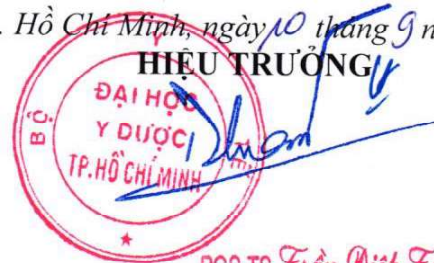 . Hồ Chí Minh, ngày 10 tháng 9 n
HIỆU TRƯỞNG
BỘ Y TẾ
ĐẠI HỌC
Y DƯỢC
TP. HỒ CHÍ MINH
PGS.TS Trần Diệp T